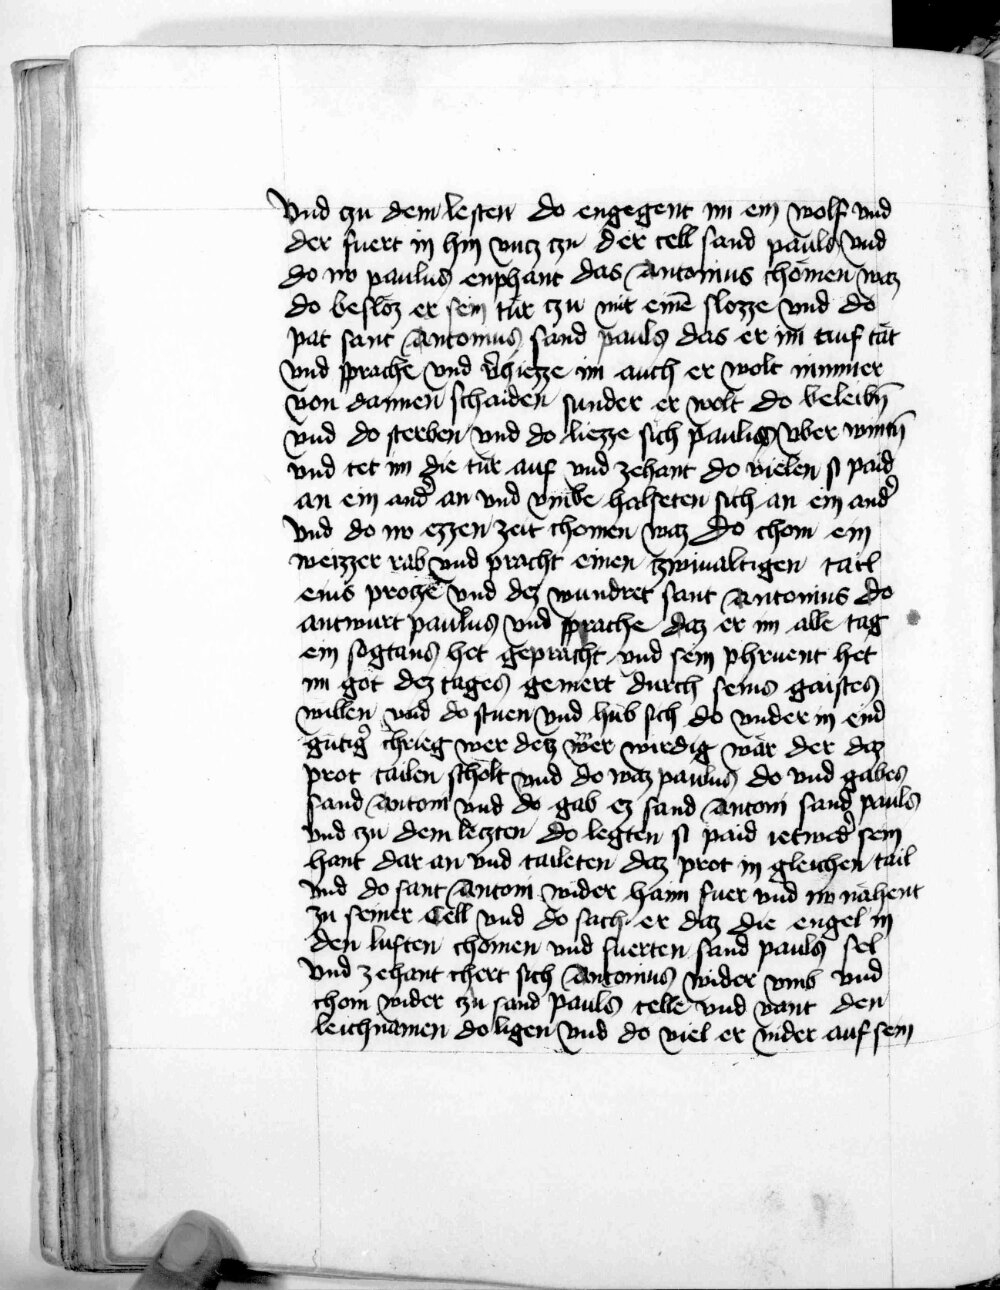 Vnd czu dem lesten do engegent im ein wolf vnd
der fuert in hin vncz czu der cell sand pauls vnd
do nv paulus enphant das Antonius chömen waz
do besloz er sein tür czu mit einē slozze vnd do
pat sant Antonius sand pauls das er im auf tät
vnd sprache vnd v̉hiezze im auch er wolt nimmer
von dannen schaiden sunder er wolt do beleibn̄
vnd do sterben vnd do liezze sich paulus vber wintn̄
vnd tet im die tür auf vnd zehant do vielen si paid
an ein and̉ an vnd vmbe halseten sich an ein and̉
Vnd do nv ezzen zeit chomen waz Do chom ein
weizzer rab vnd pracht einen czwiualtigen tail
eins protze vnd dez wundret sant Antonius do
antwurt paulus vnd sprache daz er im alle tag
ein sogtans het gepracht vnd sein phruent het
im got dez tages gemert durch seins gaistes
willen vnd do stuen vnd hub sich do vnder in eind̉
gütig̉ chrieg wer detz wer wirdig wär der daz
prot tailen scholt vnd do waz paulus do vnd gabes
sand Antoni vnd do gab ez sand Antoni sand pauls
vnd zu dem letzten do legten si paid ietwed̉ sein
hant dar an vnd taileten daz prot in gleichen tail
vnd do sant Antoni wider haim fuer vnd nv nähent
zu seiner Cell vnd do sach er daz die engel in
den luften chomen vnd fuerten sand pauls sel
vnd zehant chert sich Antonius wider vmb vnd
chom wider czu sand pauls celle vnd vant den
leichnamen do ligen vnd do viel er nider auf sein